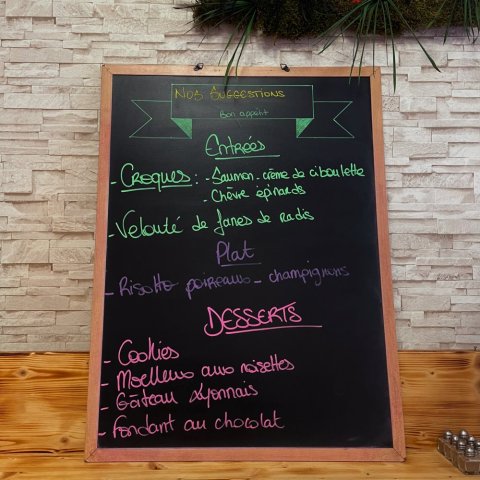 Nos Suggestions
Bon appétit
Entrées
- Croques : - Saumon - crème de ciboulette
- Chèvre épinards
- Velouté de fanes de radis
Plat
- Risotto poireaux - champignons
DESSERTS
- Cookies
- Moelleux aux noisettes
- Gâteau Lyonnais
- Fondant au chocolat